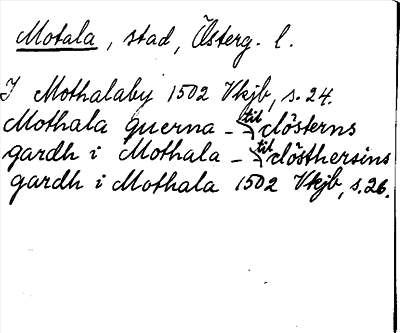 Motala, stad, Österg. l.
I Mothalaby 1502 Vkjb, s. 24.
Mothala querna – til clösterns
gardh i Mothala – til clösthersins
gardh i Mothala 1502 Vkjb, s. 26.